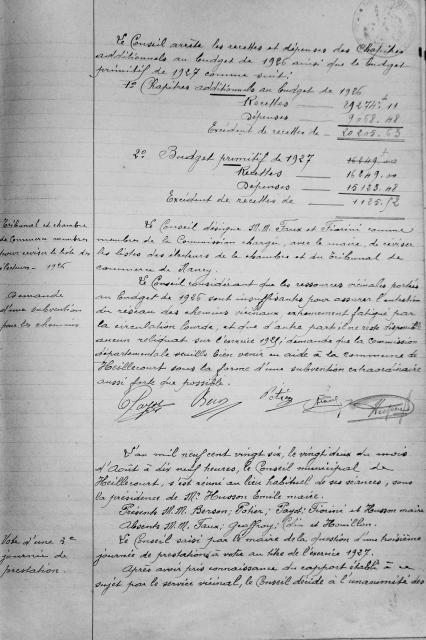 Le Conseil arrête les recettes et dépenses des Chapitres
additionnels au budget de 1926 ainsi que le budget
primitif de 1927 comme suit:
1° Chapitres additionnels au budget de 1926
Recettes — 29274 f 11
Dépenses — 9068.48
Excédent de recettes de — 20205.63
2° Budget primitif de 1927
Recettes — 16249.00
Dépenses — 15123.48
Excédent de recettes de — 1125.52
Tribunal et chambre
de Commerce membres
pour reviser la liste des
électeurs - 1926
Le Conseil désigne M.M. Faux et Fiorini comme
membres de la Commission chargée, avec le maire, de reviser
les listes des électeurs de la chambre et du Tribunal de
commerce de Nancy.
Demande
d'une subvention
pour les chemins
Le Conseil considérant que les ressources vicinales portées
au budget de 1926 sont insuffisantes pour assurer l'entretien
du réseau des chemins vicinaux, extrêmement fatigué par
la circulation lourde, et que d'autre part il ne reste disponible
aucun reliquat sur l'exercice 1925, demande que la Commission
départementale veuille bien venir en aide à la commune de
Heillecourt sous la forme d'une subvention extraordinaire
aussi forte que possible.
L'an mil neuf cent vingt six, le vingt deux du mois
d'Août à dix neuf heures, le Conseil municipal de
Heillecourt, s'est réuni au lieu habituel de ses séances, sous
la présidence de Mr Husson Emile maire.
Présents M.M. Berson; Fiorini et Husson maire
Absents M.M. Faux; Geoffroy; et Houillon.
Vote d'une 3e
journée de
prestation.
Le Conseil saisi par le maire de la question d'une troisième
journée de prestations à voter au titre de l'exercice 1927.
Après avoir pris connaissance du rapport établi à ce
sujet par le service vicinal, le Conseil décide à l'unanimité des